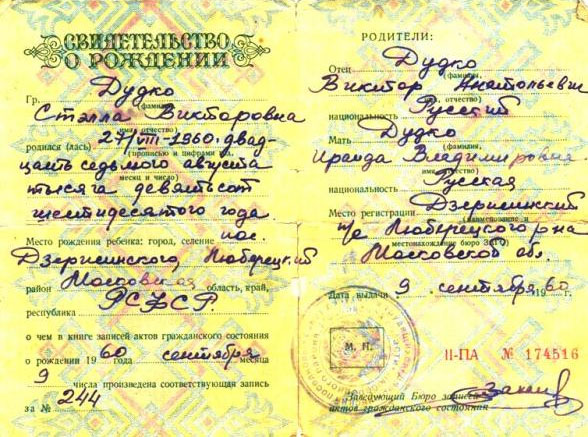 СВИДЕТЕЛЬСТВО
О РОЖДЕНИИ
Дудко
Гр.
(фамилия,
Стэлла Викторовна
имя, отчество)
родился (лась) 27/VIII-1960. двад-
(прописью и цифрами год,
цать седьмого августа
месяц и число)
тысяча девятьсот
шестидесятого года
Место рождения ребенка: город, селение пос.
Дзержинского, Люберецкий
район Московская область, край,
республика РСФСР.
о чем в книге записей актов гражданского состояния
о рождении 19 60 года сентября месяца
9 числа произведена соответствующая запись
за № 244
РОДИТЕЛИ:
Отец Дудко
(фамилия,
Виктор Анатольевич
имя, отчество)
национальность Русский
Мать Дудко
(фамилия,
Ираида Владимировна
имя, отчество)
национальность Русская
Место регистрации Дзержинский
(наименование и
п/с Люберецкого р-на
местонахождение бюро ЗАГС)
Московской обл.
Дата выдачи 9 сентября 1960 г.
М. П.
II-ПА № 174516
Заведующий Бюро записей
актов гражданского состояния